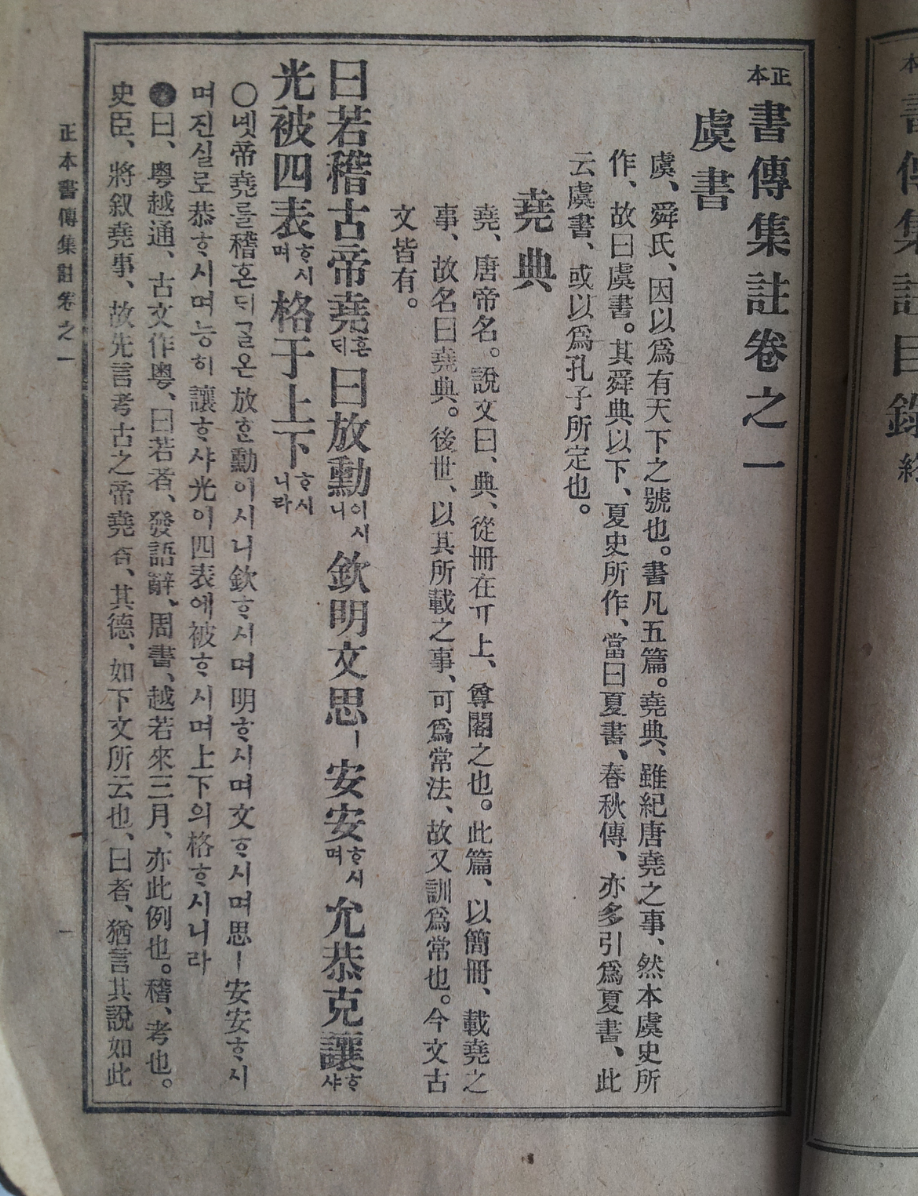 正本 書傳集註卷之一
虞書
虞、舜氏、因以爲有天下之號也。書凡五篇。堯典、雖紀唐堯之事、然本虞史所
作、故曰虞書。其舜典以下、夏史所作、當曰夏書、春秋傳、亦多引爲夏書、此
云虞書、或以爲孔子所定也。
堯典
堯、唐帝名。說文曰、典、從冊在丌上、尊閣之也。此篇、以簡冊、載堯之
事、故名曰堯典。後世、以其所載之事、可爲常法、故又訓爲常也。今文古
文皆有。
曰若稽古帝堯혼ᄃᆡ曰放勳이시니欽明文思ㅣ安安ᄒᆞ시며允恭克讓ᄒᆞ샤
光被四表ᄒᆞ시며格于上下ᄒᆞ시니라
○녯帝堯를稽혼ᄃᆡᄀᆞᆯ온放ᄒᆞᆫ勳이시니欽ᄒᆞ시며明ᄒᆞ시며文ᄒᆞ시며思ㅣ安安ᄒᆞ시
며진실로恭ᄒᆞ시며능히讓ᄒᆞ샤光이四表에被ᄒᆞ시며上下의格ᄒᆞ시니라
●曰、粤越通、古文作粤、曰若者、發語辭、周書、越若來三月、亦此例也。稽、考也。
史臣、將叙堯事、故先言考古之帝堯者、其德、如下文所云也、曰者、猶言其說如此
正本書傳集註卷之一
一